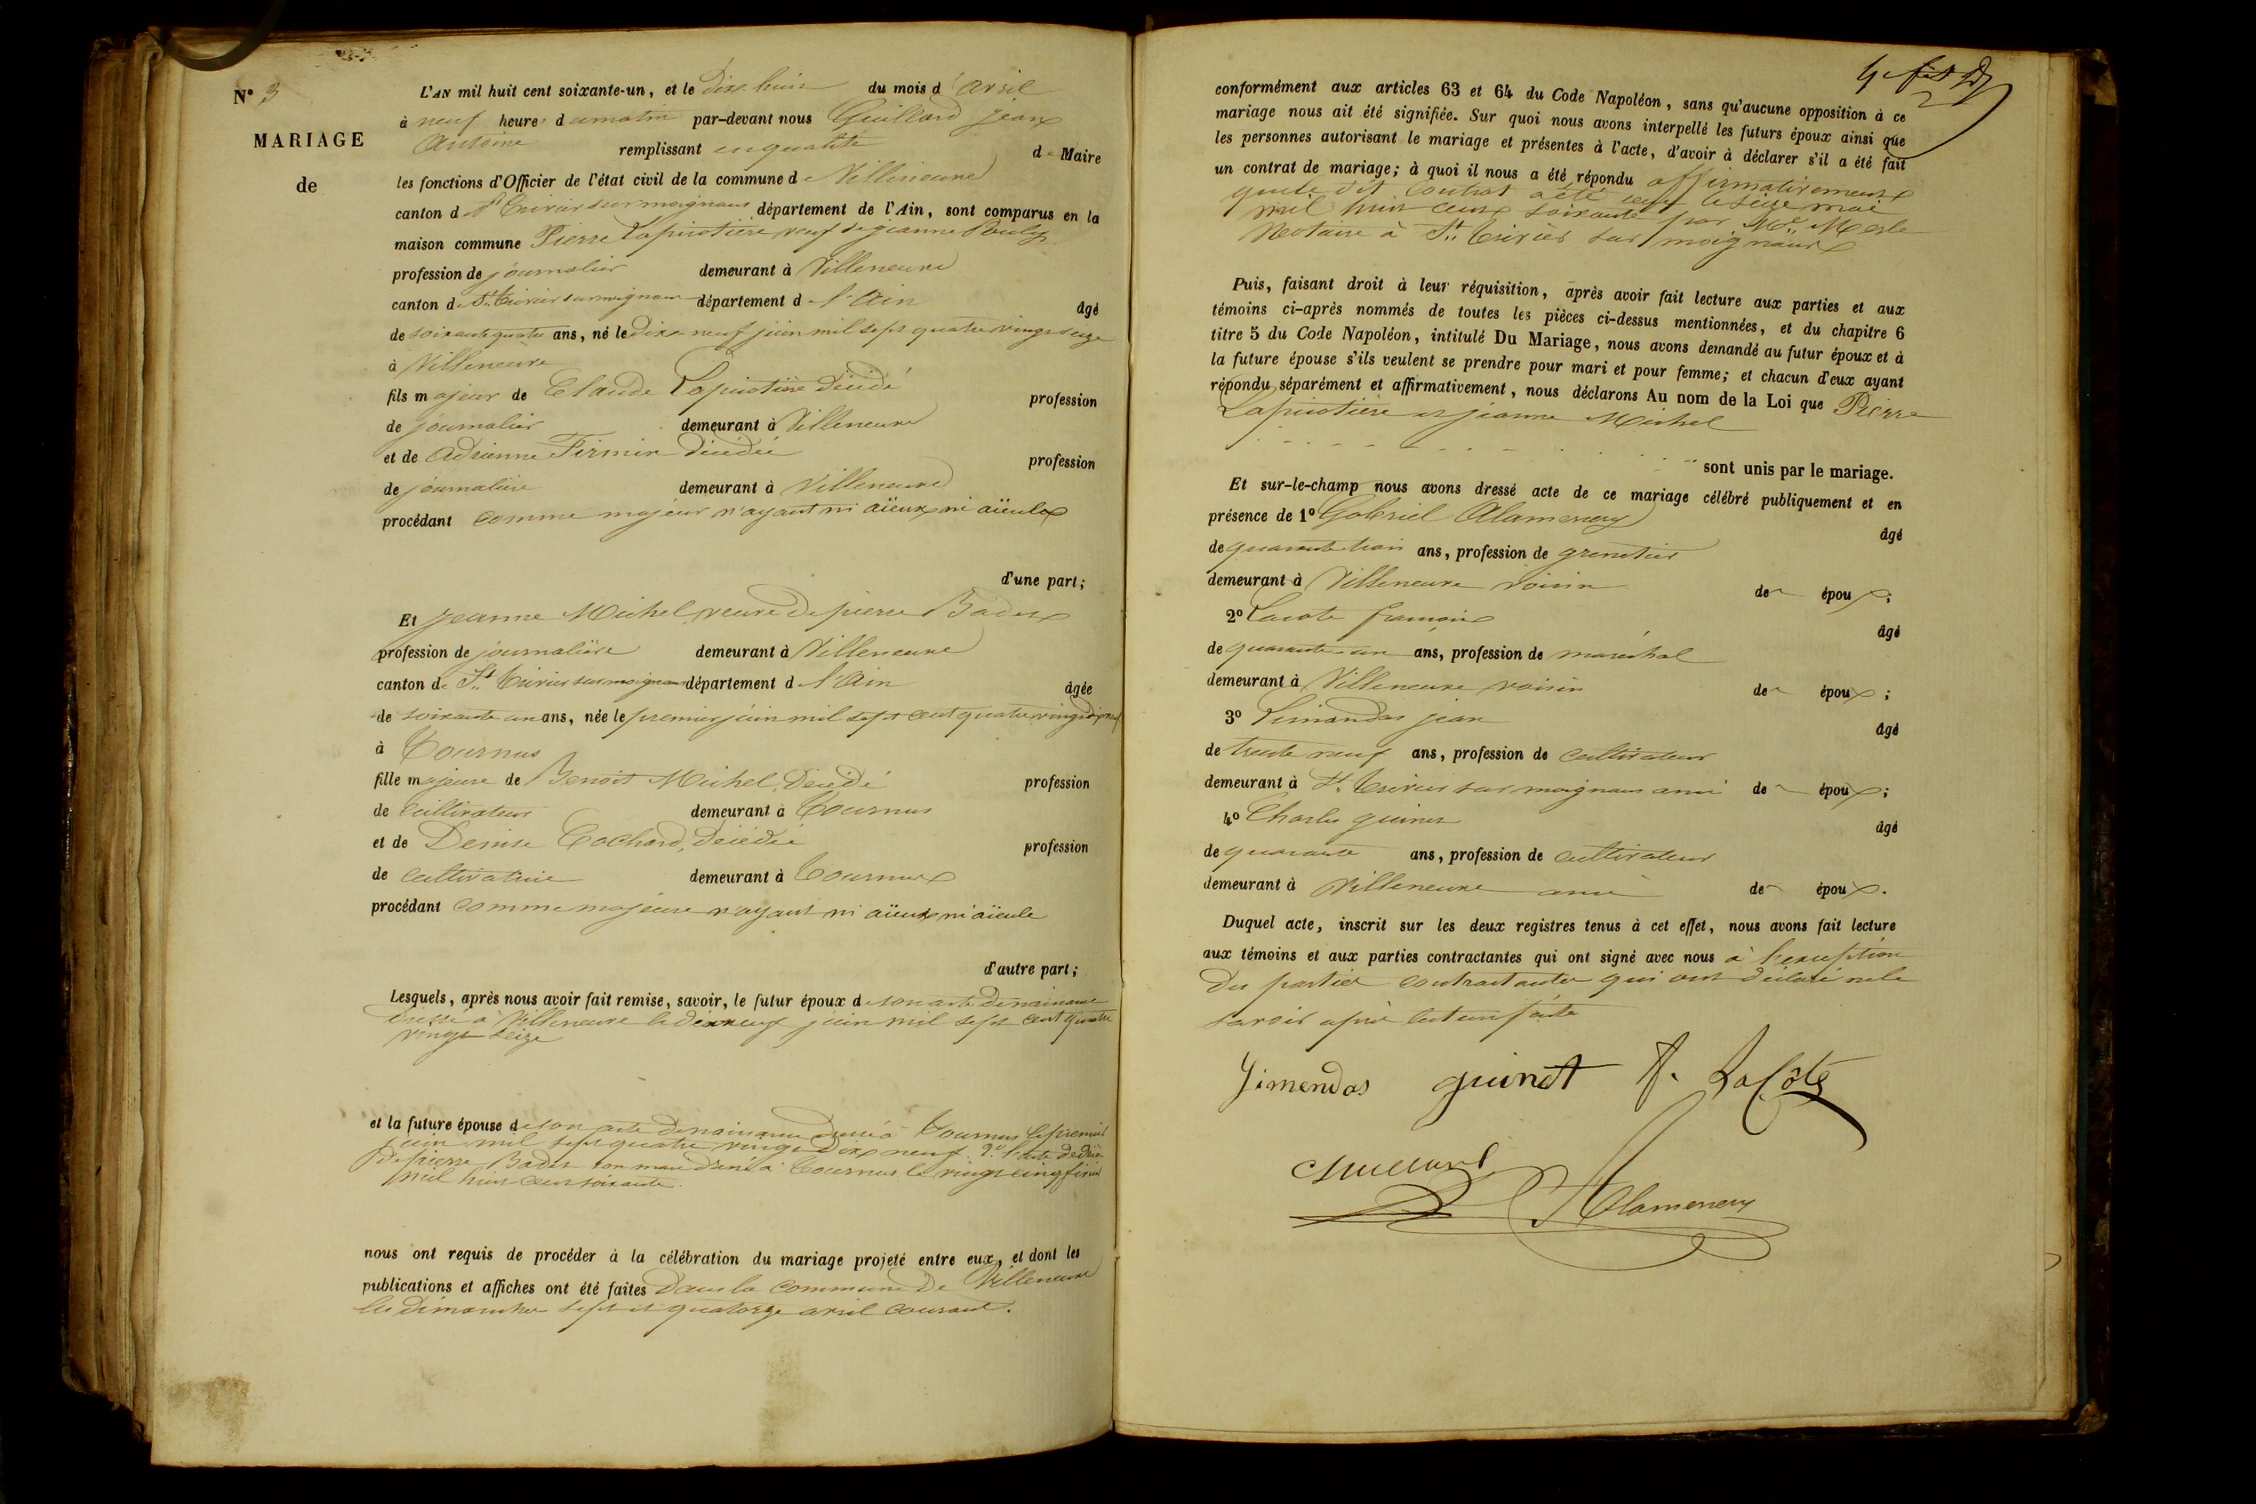 N° 3
MARIAGE
de
L'AN mil huit cent soixante-un, et le dix huit du mois d'avril
à neuf heures du matin par-devant nous Guillard Jean
Antoine remplissant en qualité de Maire
les fonctions d'Officier de l'état civil de la commune de Villeneuve
canton de St Trivier sur moignans département de l'Ain, sont comparus en la
maison commune Pierre Lapicotière veuf de jeanne
profession de journalier demeurant à Villeneuve
canton de St Trivier sur moignans département de l'Ain âgé
de soixante quatre ans, né le dix-neuf juin mil sept quatre vingt seize
à Villeneuve
fils majeur de Claude Lapicotière décédé profession
de journalier demeurant à Villeneuve
et de Adrienne Firmin décédée profession
de journalière demeurant à Villeneuve
procédant comme majeur n'ayant ni aïeux ni aïeule
d'une part;
Et jeanne Michel veuve de pierre Badet
profession de journalière demeurant à Villeneuve
canton de St Trivier sur moignans département de l'Ain âgée
de soixante un ans, née le premier juin mil sept cent quatre vingt dix neuf
à Tournus
fille majeure de Benoit Michel, décédé profession
de cultivateur demeurant à Tournus
et de Denise Cochard, décédée profession
de cultivatrice demeurant à Tournus
procédant comme majeure n'ayant ni aïeux ni aïeule
d'autre part;
Lesquels, après nous avoir fait remise, savoir, le futur époux de son acte de naissance
dressé à Villeneuve le dix neuf juin mil sept cent quatre
vingt seize
et la future épouse de son acte de naissance dressé à Tournus le premier
juin mil sept quatre vingt dix neuf. 2° l'acte de décès
de pierre Badet son mari dressé à Tournus le vingt cinq
mil huit cent soixante.
nous ont requis de procéder à la célébration du mariage projeté entre eux, et dont les
publications et affiches ont été faites dans la commune de Villeneuve
les dimanches sept et quatorze avril courant.
conformément aux articles 63 et 64 du Code Napoléon, sans qu'aucune opposition à ce
mariage nous ait été signifiée. Sur quoi nous avons interpellé les futurs époux ainsi que
les personnes autorisant le mariage et présentes à l'acte, d'avoir à déclarer s'il a été fait
un contrat de mariage; à quoi il nous a été répondu affirmativement
que le dit contrat a été reçu le seize mai
mil huit cent soixante par Me Merle
Notaire à St Trivier sur moignans
Puis, faisant droit à leur réquisition, après avoir fait lecture aux parties et aux
témoins ci-après nommés de toutes les pièces ci-dessus mentionnées, et du chapitre 6
titre 5 du Code Napoléon, intitulé Du Mariage, nous avons demandé au futur époux et à
la future épouse s'ils veulent se prendre pour mari et pour femme; et chacun d'eux ayant
répondu séparément et affirmativement, nous déclarons Au nom de la Loi que Pierre
Lapicotière et jeanne Michel
sont unis par le mariage.
Et sur-le-champ nous avons dressé acte de ce mariage célébré publiquement et en
présence de 1° Gabriel Alamercery âgé
de quarante trois ans, profession de grenetier
demeurant à Villeneuve voisin des époux;
2° Lacote françois âgé
de quarante un ans, profession de maréchal
demeurant à Villeneuve voisin des époux;
3° Simandas jean âgé
de trente neuf ans, profession de cultivateur
demeurant à St Trivier sur moignans ami des époux;
4° Charles guinet âgé
de quarante ans, profession de cultivateur
demeurant à Villeneuve ami des époux.
Duquel acte, inscrit sur les deux registres tenus à cet effet, nous avons fait lecture
aux témoins et aux parties contractantes qui ont signé avec nous à l'exception
des parties contractantes qui ont déclaré ne le
savoir après lecture faite
Simendas guinet f. LaCôte
Guillard
Alamercery